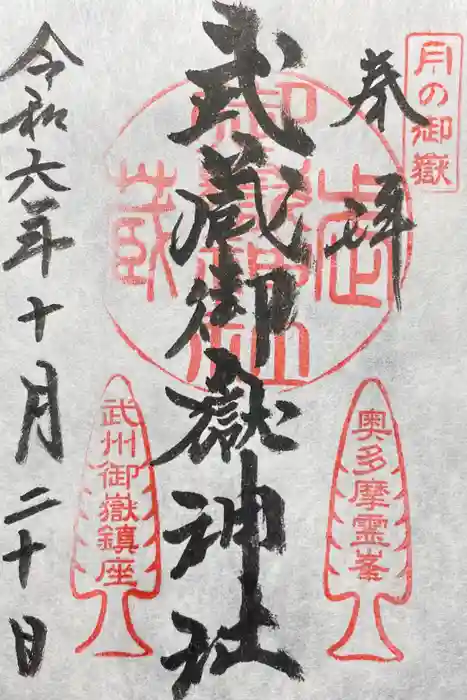 月の御嶽
奉拝
武蔵御嶽神社
武蔵
御嶽神社
奥多摩霊峯
武州御嶽鎮座
令和六年十月二十日